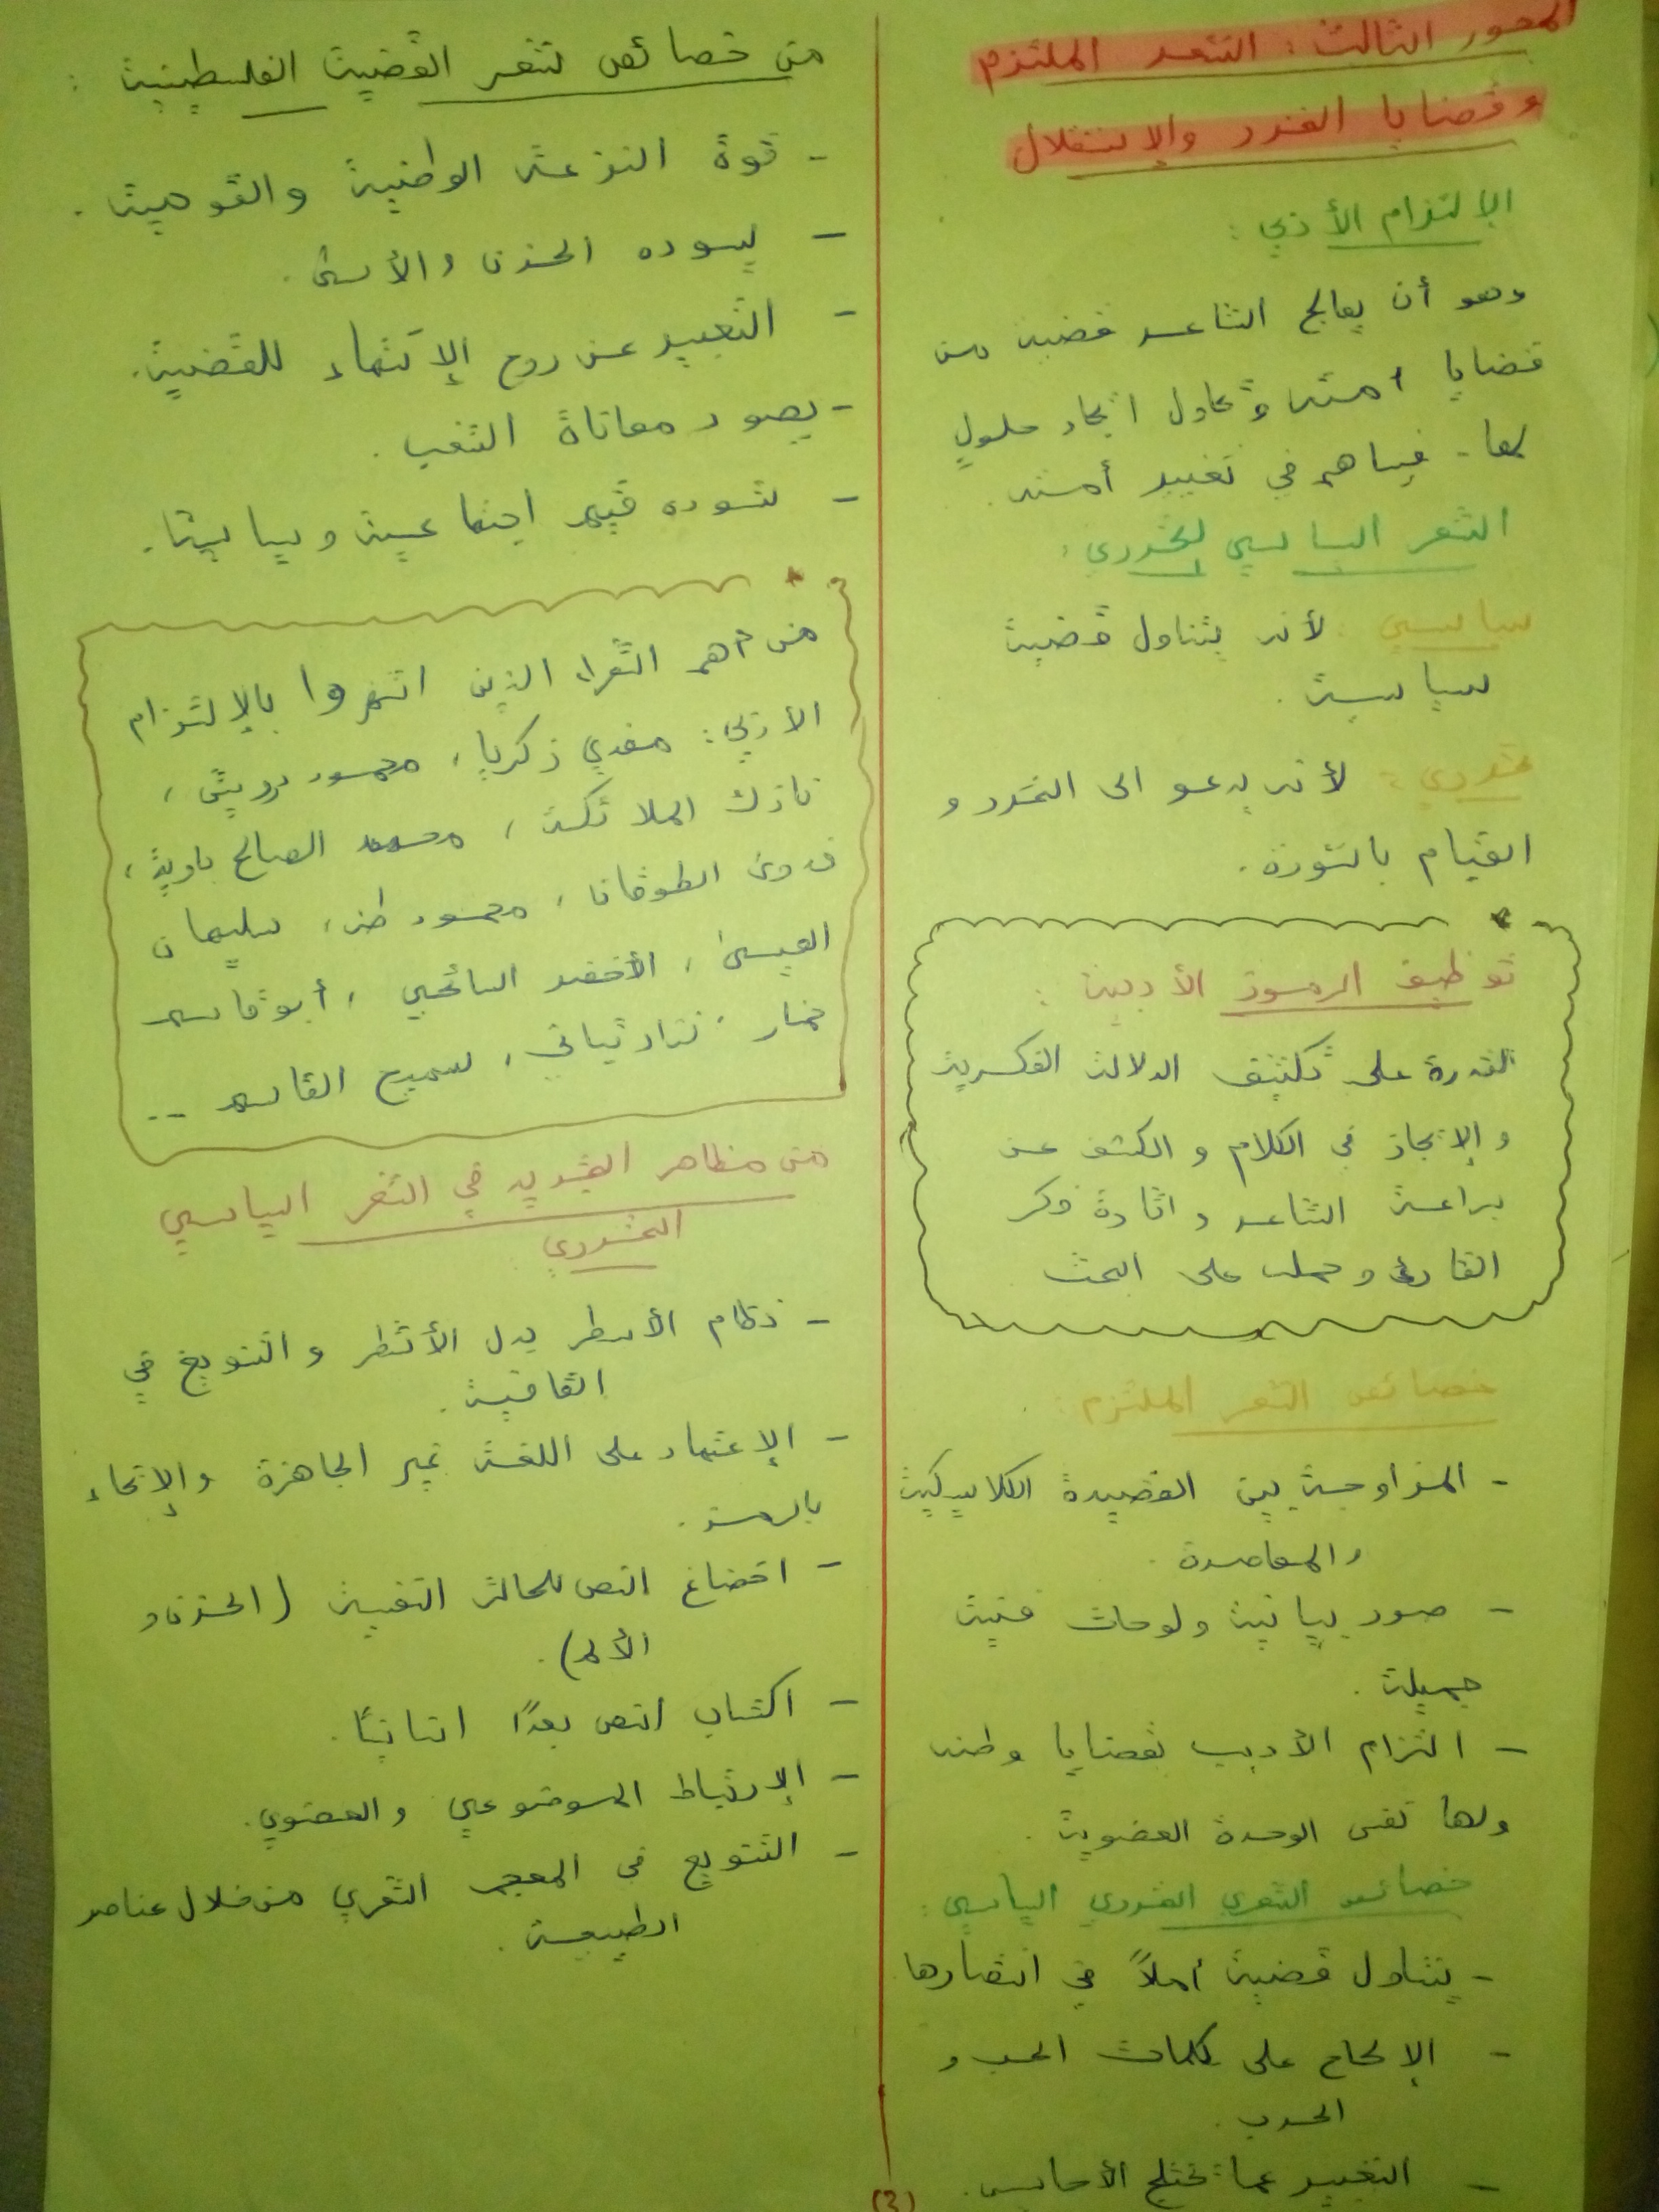 المحور الثالث : الشعر الملتزم
وقضايا التحرر والإستقلال
الإلتزام الأدبي :
وهو أن يعالج الشاعر قضية من
قضايا امته و يحاول ايجاد حلول
لها . فيساهم في تغيير أمته .
الشعر السياسي التحرري :
سياسي : لأنه يتناول قضية
سياسية .
تحرري : لأنه يدعو الى التحرر و
القيام بالثورة .
توظيف الرموز الأدبية :
القدرة على تكثيف الدلالة الفكرية
و الإيجاز في الكلام و الكشف عن
براعة الشاعر و اثارة فكر
القارئ و حمله على البحث
خصائص الشعر الملتزم :
- المزاوجة بين القصيدة الكلاسيكية
والمعاصرة .
- صور بيانية ولوحات فنية
جميلة .
- التزام الأديب بقضايا وطنه
ولها نفس الوحدة العضوية .
خصائص الشعري التحرري السياسي :
- يتناول قضية أملاً في انتصارها
- الإلحاح على كلمات الحب و
الحرب .
- التعبير عما تختلج الأحاسيس .
(3)
من خصائص شعر القضية الفلسطينية :
- قوة النزعة الوطنية والقومية .
- يسوده الحزن والأسى .
- التعبير عن روح الإنتماء للقضية .
- يصور معاناة الشعب .
- تسوده قيم اجتماعية وسياسية .
من أهم الشعراء الذين اشتهروا بالإلتزام
الأدبي : مفدي زكريا ، محمود درويش ،
نازك الملائكة ، محمد الصالح باوية ،
فدوى الطوقان ، محمود طه ، سليمان
العيسى ، الأخضر السائحي ، أبو قاسم
خمار ، نزار قباني ، سميح القاسم ..
من مظاهر التجديد في الشعر السياسي
التحرري
- نظام الأسطر بدل الأشطر و التنويع في
القافية .
- الإعتماد على اللغة غير الجاهزة والإيحاء
بالرمز .
- اخضاع النص للحالة النفسية (الحزن و
الألم) .
- اكتساب النص بعدًا انسانيًا .
- الإرتباط الموضوعي والعضوي .
- التنويع في المعجم الشعري من خلال عناصر
الطبيعة .